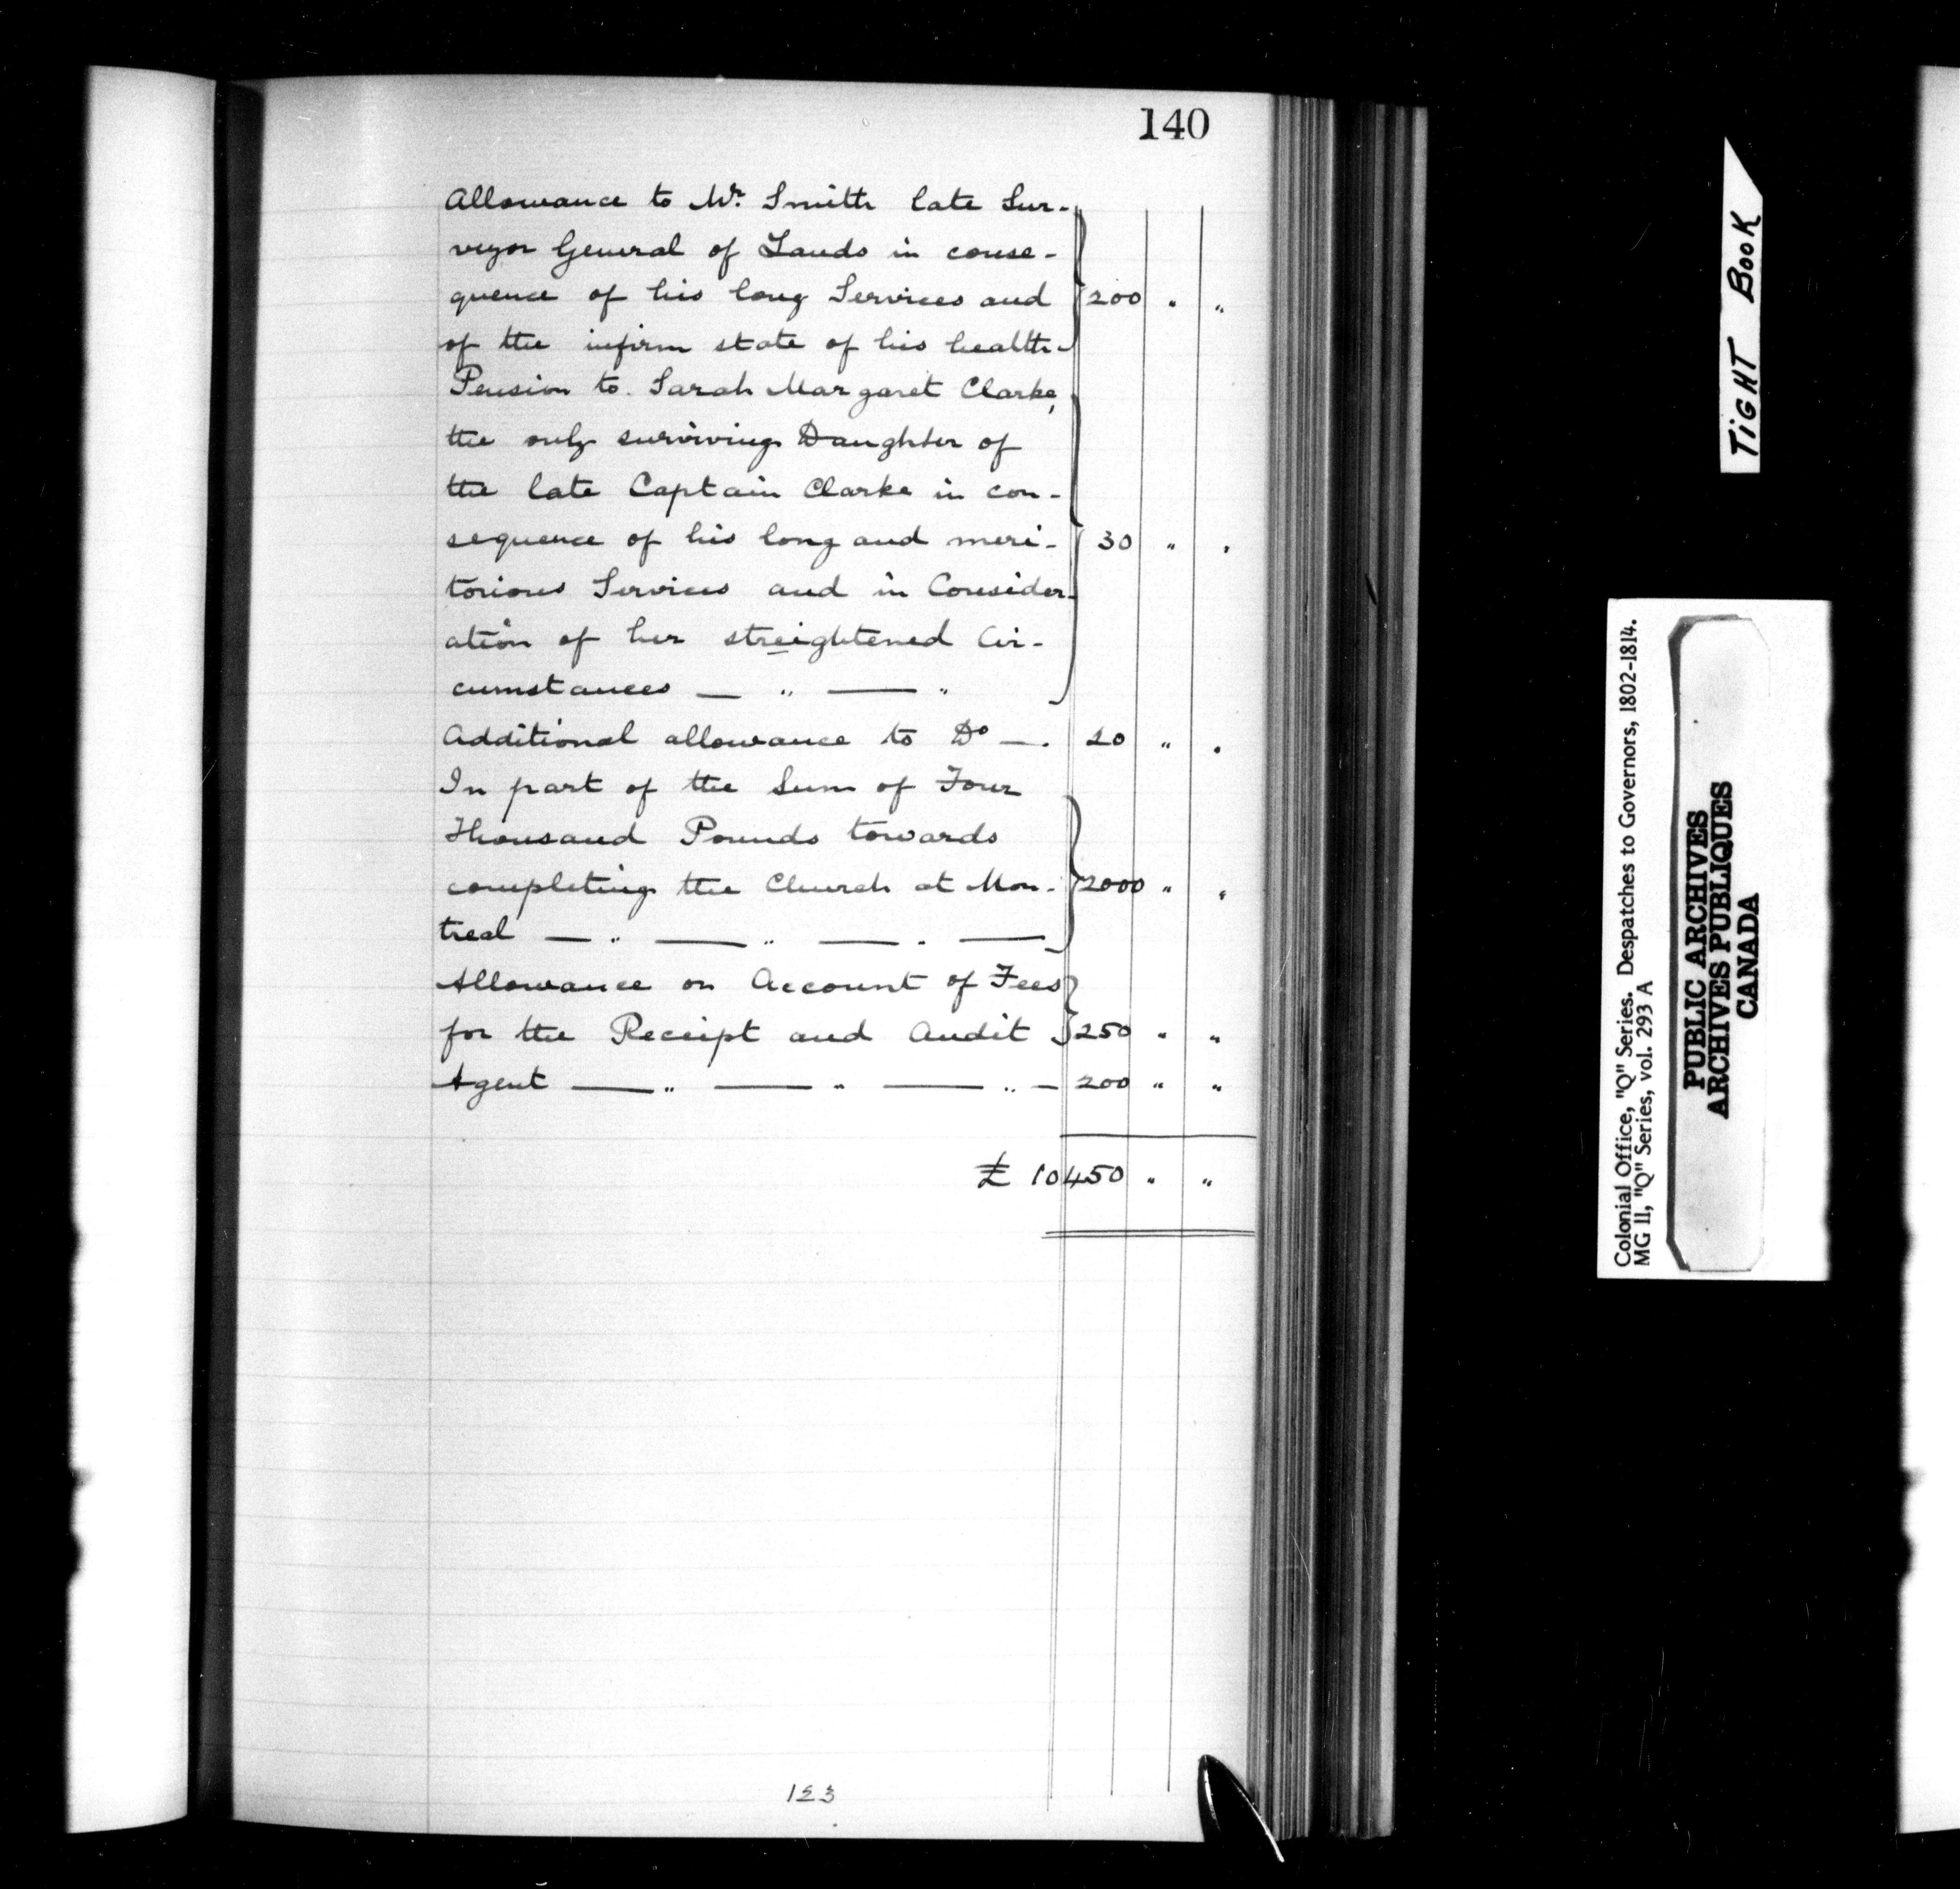 140
Allowance to Mr. Smith late Sur-
veyor General of Lands in conse-
quence of his long Services and 200 " "
of the infirm state of his health-
Pension to Sarah Margaret Clarke,
the only surviving Daughter of
the late Captain Clarke in con-
sequence of his long and meri- 30 " "
torious Services and in Consider-
ation of her streightened Cir-
cumstances — " — "
Additional allowance to Do — . 20 " .
In part of the Sum of Four
Thousand Pounds towards
completing the Church at Mon- 2000 " "
treal — " — " — . —
Allowance on Account of Fees
for the Receipt and Audit 250 " "
Agent — " — " — " — 200 " "
£ 10450 " "
123
TIGHT BOOK
Colonial Office, "Q" Series. Despatches to Governors, 1802-1814.
MG 11, "Q" Series, vol. 293 A
PUBLIC ARCHIVES
ARCHIVES PUBLIQUES
CANADA